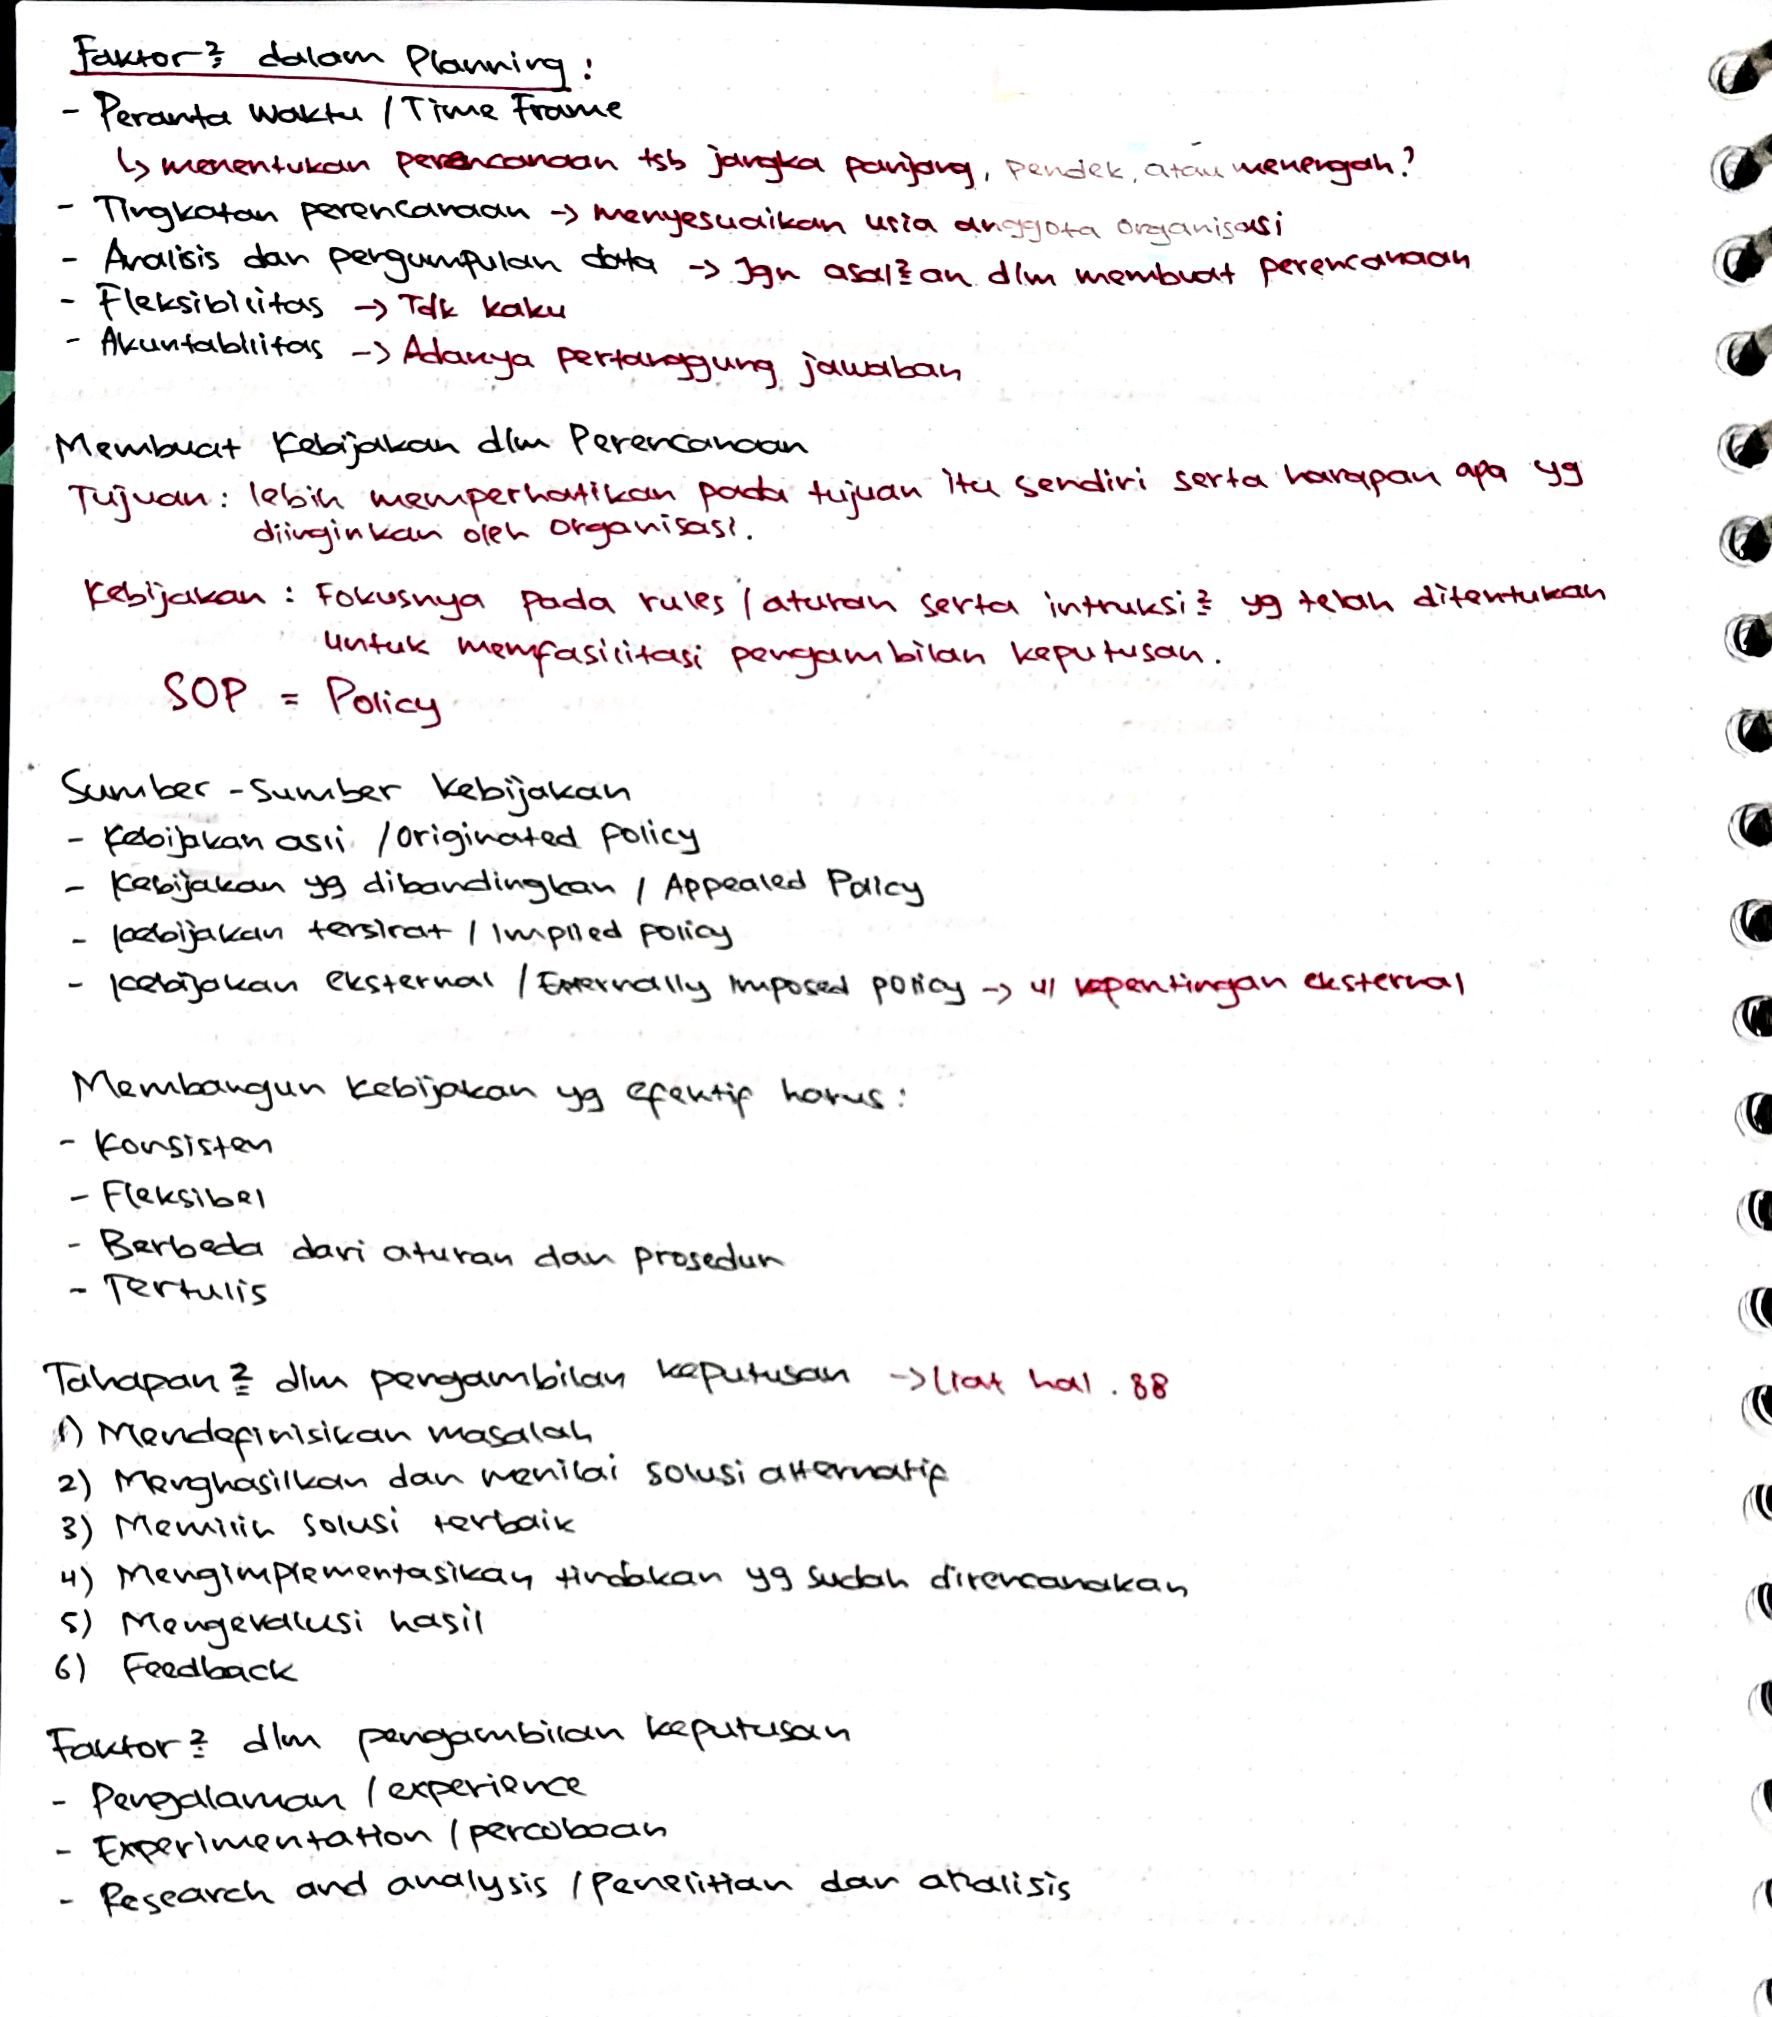 Faktor² dalam Planning :
- Peranta Waktu / Time Frame
↳ menentukan perencanaan tsb jangka panjang, pendek, atau menengah?
- Tingkatan perencanaan -> menyesuaikan usia anggota organisasi
- Analisis dan pengumpulan data -> Jgn asal²an dlm membuat perencanaan
- Fleksibilitas -> Tdk kaku
- Akuntabilitas -> Adanya pertanggung jawaban
Membuat Kebijakan dlm Perencanaan
Tujuan : lebih memperhatikan pada tujuan itu sendiri serta harapan apa yg
diinginkan oleh organisasi.
Kebijakan : Fokusnya pada rules / aturan serta intruksi² yg telah ditentukan
untuk memfasilitasi pengambilan keputusan.
SOP = Policy
Sumber - Sumber Kebijakan
- Kebijakan asli / Originated Policy
- Kebijakan yg dibandingkan / Appealed Policy
- kebijakan tersirat / Implied policy
- kebijakan eksternal / Externally Imposed policy -> u/ kepentingan eksternal
Membangun kebijakan yg efektif harus :
- Konsisten
- Fleksibel
- Berbeda dari aturan dan prosedur
- Tertulis
Tahapan² dlm pengambilan keputusan -> liat hal. 88
1) Mendefinisikan masalah
2) Menghasilkan dan menilai solusi alternatif
3) Memilih solusi terbaik
4) Mengimplementasikan tindakan yg sudah direncanakan
5) Mengevalusi hasil
6) Feedback
Faktor² dlm pengambilan keputusan
- Pengalaman / experience
- Experimentation / percobaan
- Research and analysis / Penelitian dan analisis